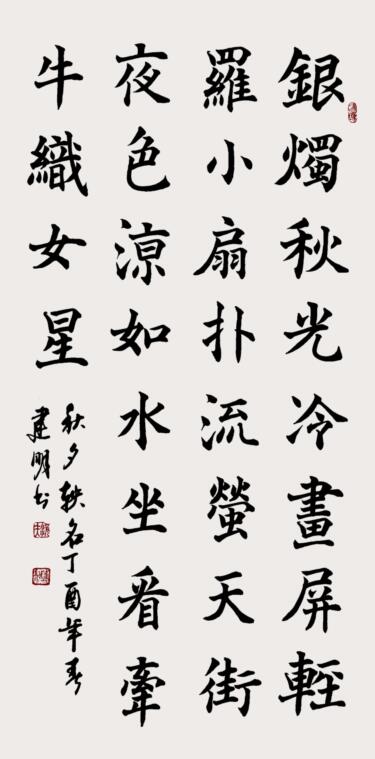 銀燭秋光冷畫屏輕
羅小扇扑流螢天街
夜色涼如水坐看牽
牛織女星
秋夕轶名丁酉年春
建明书